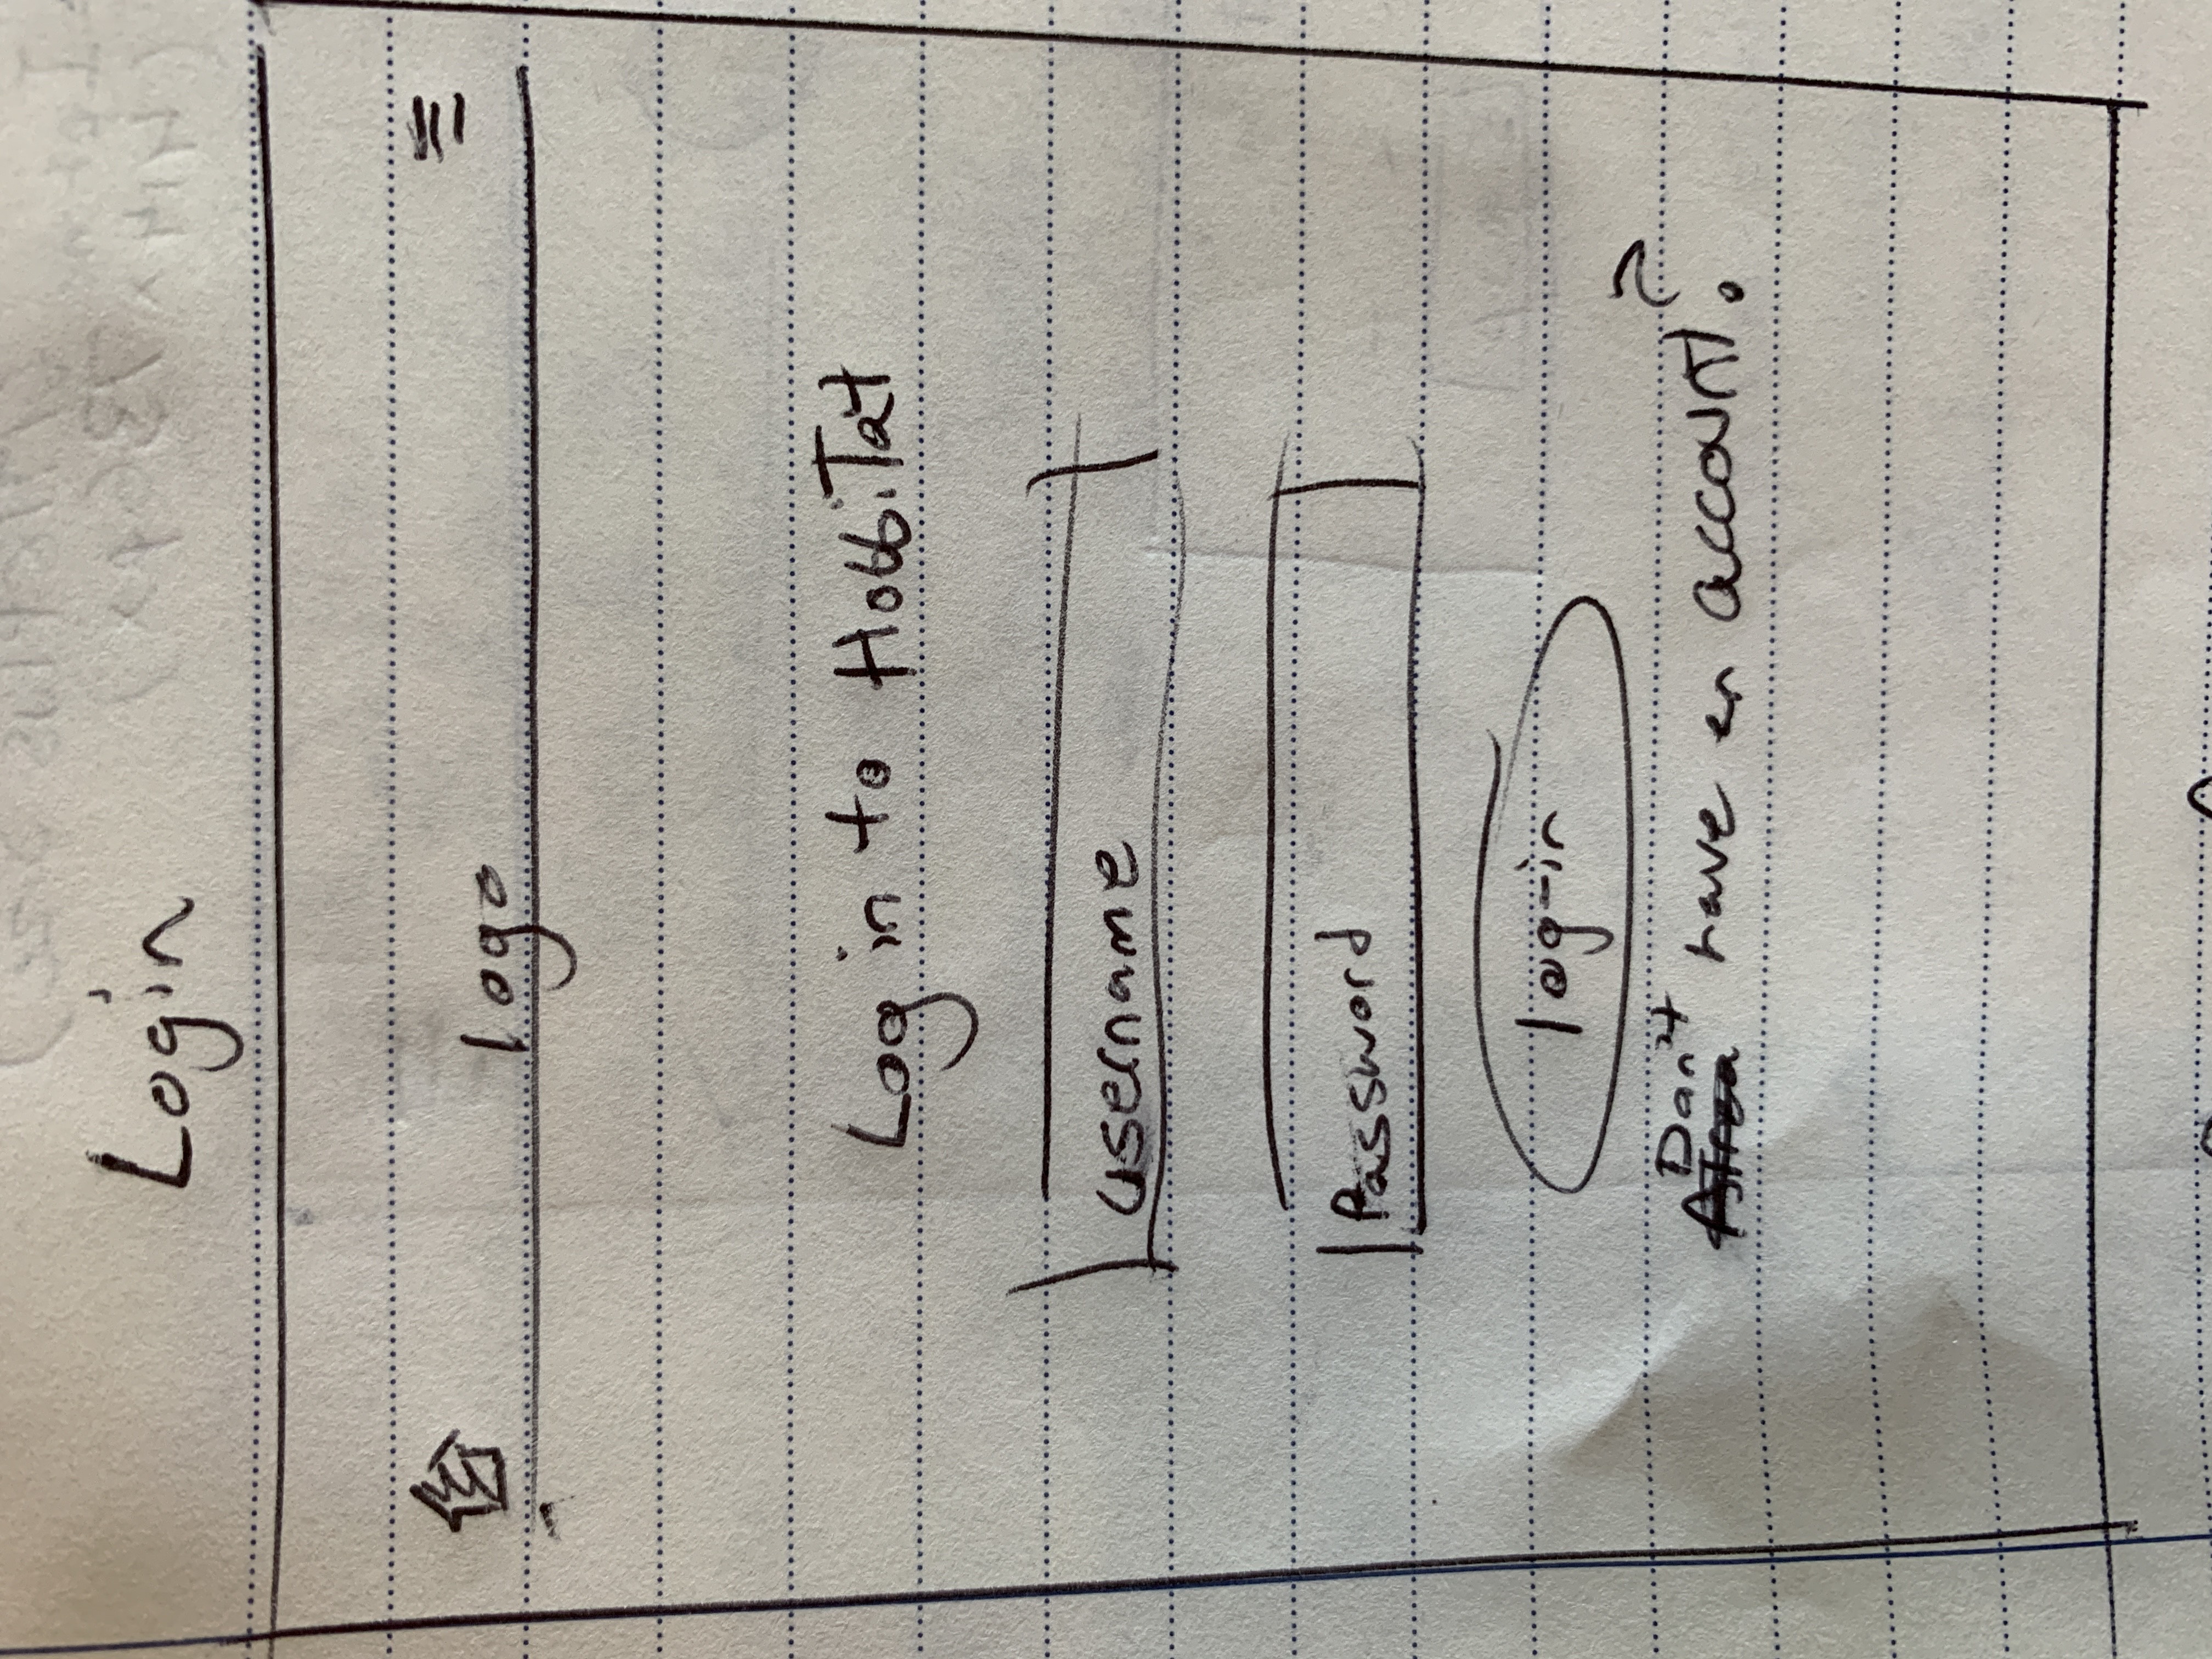 Login
logo
Log in to HobbiTat
username
Password
log-in
Don't
have an account?